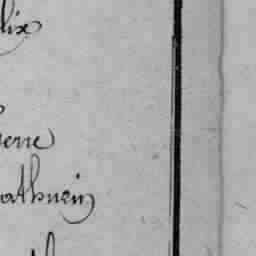 lix
erre
athurin